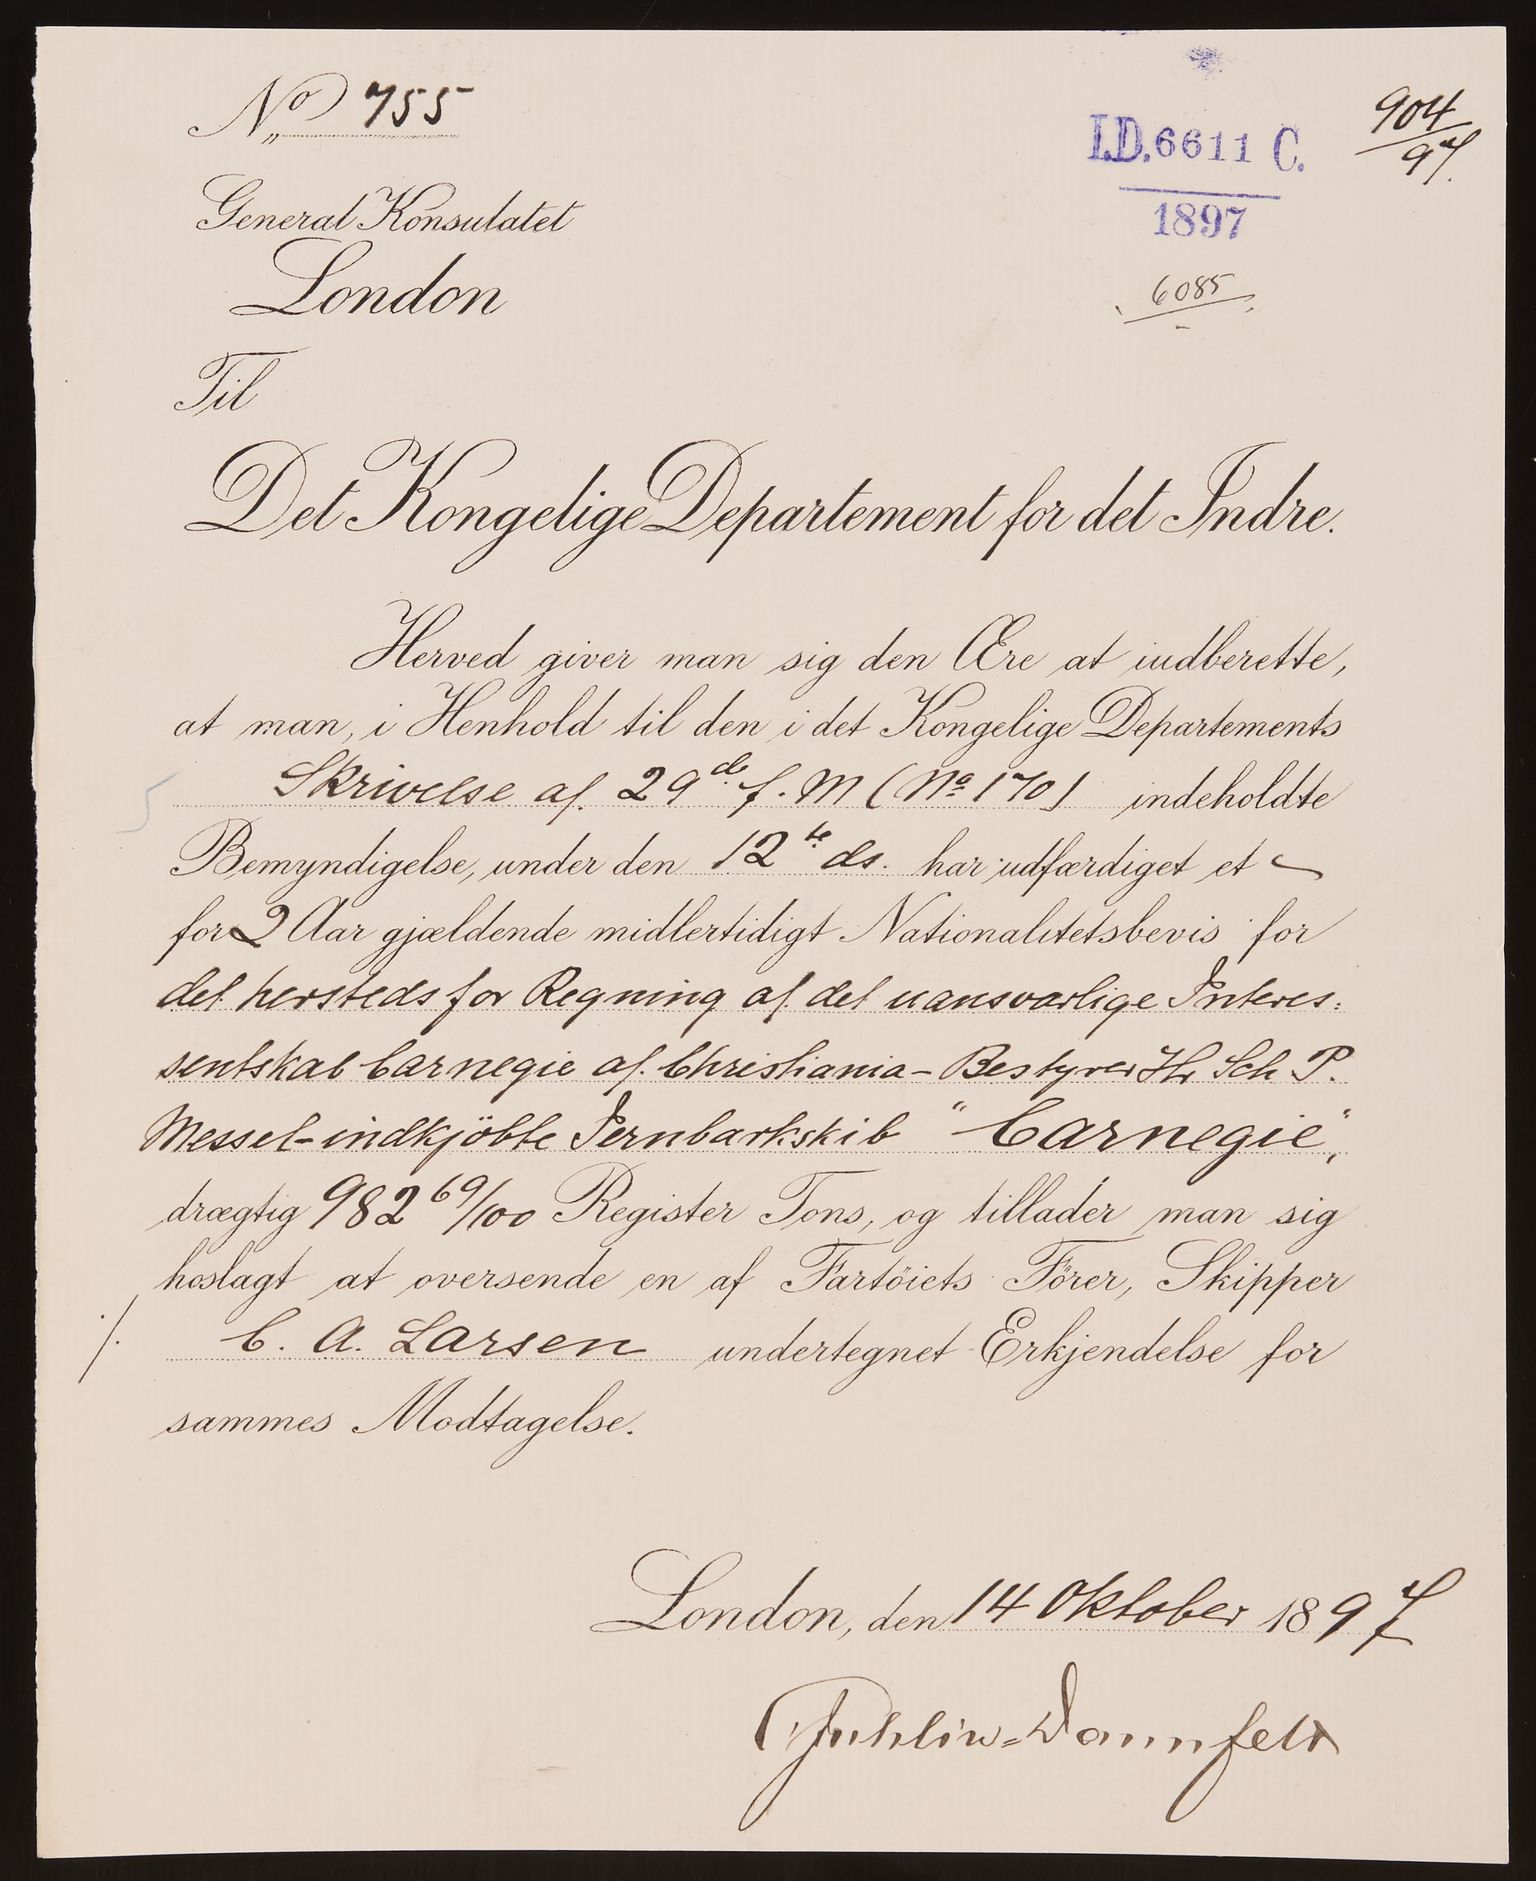 No 755
I.D. 6611 C.
1897
904
97.
6085
General Konsulatet
London
Til
Det Kongelige Departement for det Indre.
Herved giver man sig den Ære at indberette,
at man, i Henhold til den i det Kongelige Departements
Skrivelse af 29de f. M (No 170) indeholdte
Bemyndigelse, under den 12te ds. har udfærdiget et
for 2 Aar gjældende midlertidigt Nationalitetsbevis for
det hersteds for Regning af det uansvarlige Interes:
sentskab Carnegie af Christiania - Bestyrer Hr Sch P.
Messel - indkjöbte Jernbarkskib "Carnegie",
drægtig 982 69/100 Register Tons, og tillader man sig
hoslagt at oversende en af Fartöiets Förer, Skipper
./. C. A. Larsen undertegnet Erkjendelse for
sammes Modtagelse.
London, den 14 Oktober 1897
Juhlin=Dannfelt